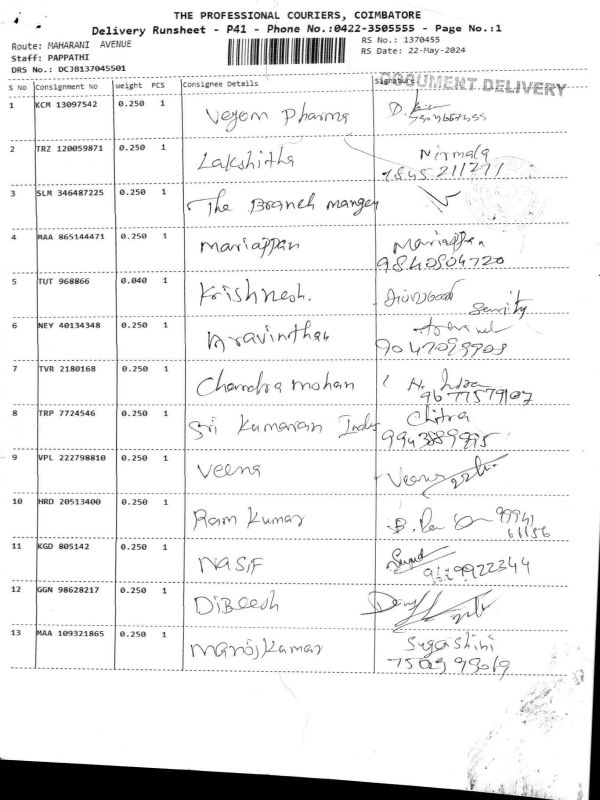 THE PROFESSIONAL COURIERS, COIMBATORE
Delivery Runsheet - P41 - Phone No.:0422-3505555 - Page No.:1
Route: MAHARANI AVENUE RS No.: 1370455
Staff: PAPPATHI RS Date: 22-May-2024
DRS No.: DCJB137045501
S No Consignment No Weight PCS Consignee Details Signature
DOCUMENT DELIVERY
1 KCM 13097542 0.250 1 Vegom Pharma D.
2 TRZ 120059871 0.250 1 Lakshitha Nirmala
9845211271
3 SLM 346487225 0.250 1 The Branch manger
4 MAA 865144471 0.250 1 mariappan Mariappan
9840504720
5 TUT 968866 0.040 1 Krishnesh. Security
6 NEY 40134348 0.250 1 Aravinthan
9047099909
7 TVR 2180168 0.250 1 Chandra mohan
9677579107
8 TRP 7724546 0.250 1 Sri Kumaran Indus Chitra
9943889995
9 VPL 222798810 0.250 1 Veena
10 HRD 20513400 0.250 1 Ram Kumar 99941
61156
11 KGD 805142 0.250 1 NASIF
9629922344
12 GGN 98628217 0.250 1 DiBeesh
13 MAA 109321865 0.250 1 Manojkumar Sugashini